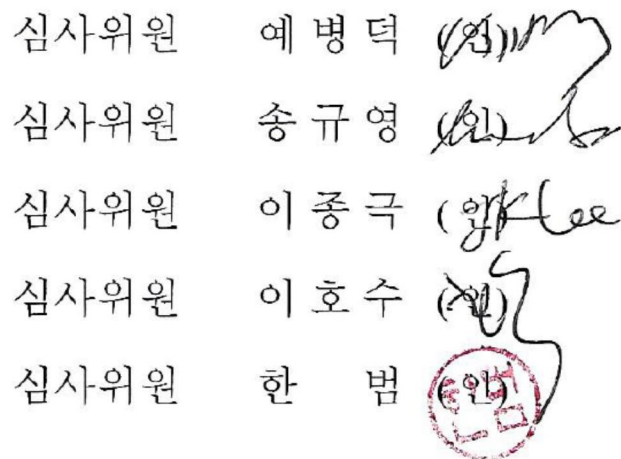 심사위원 예병덕 (인)
심사위원 송규영 (인)
심사위원 이종극 (인) JKlee
심사위원 이호수 (인)
심사위원 한 범 (인)